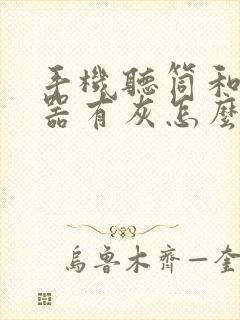 手機聽筒和
器有灰怎麼
烏魯木齊一奎